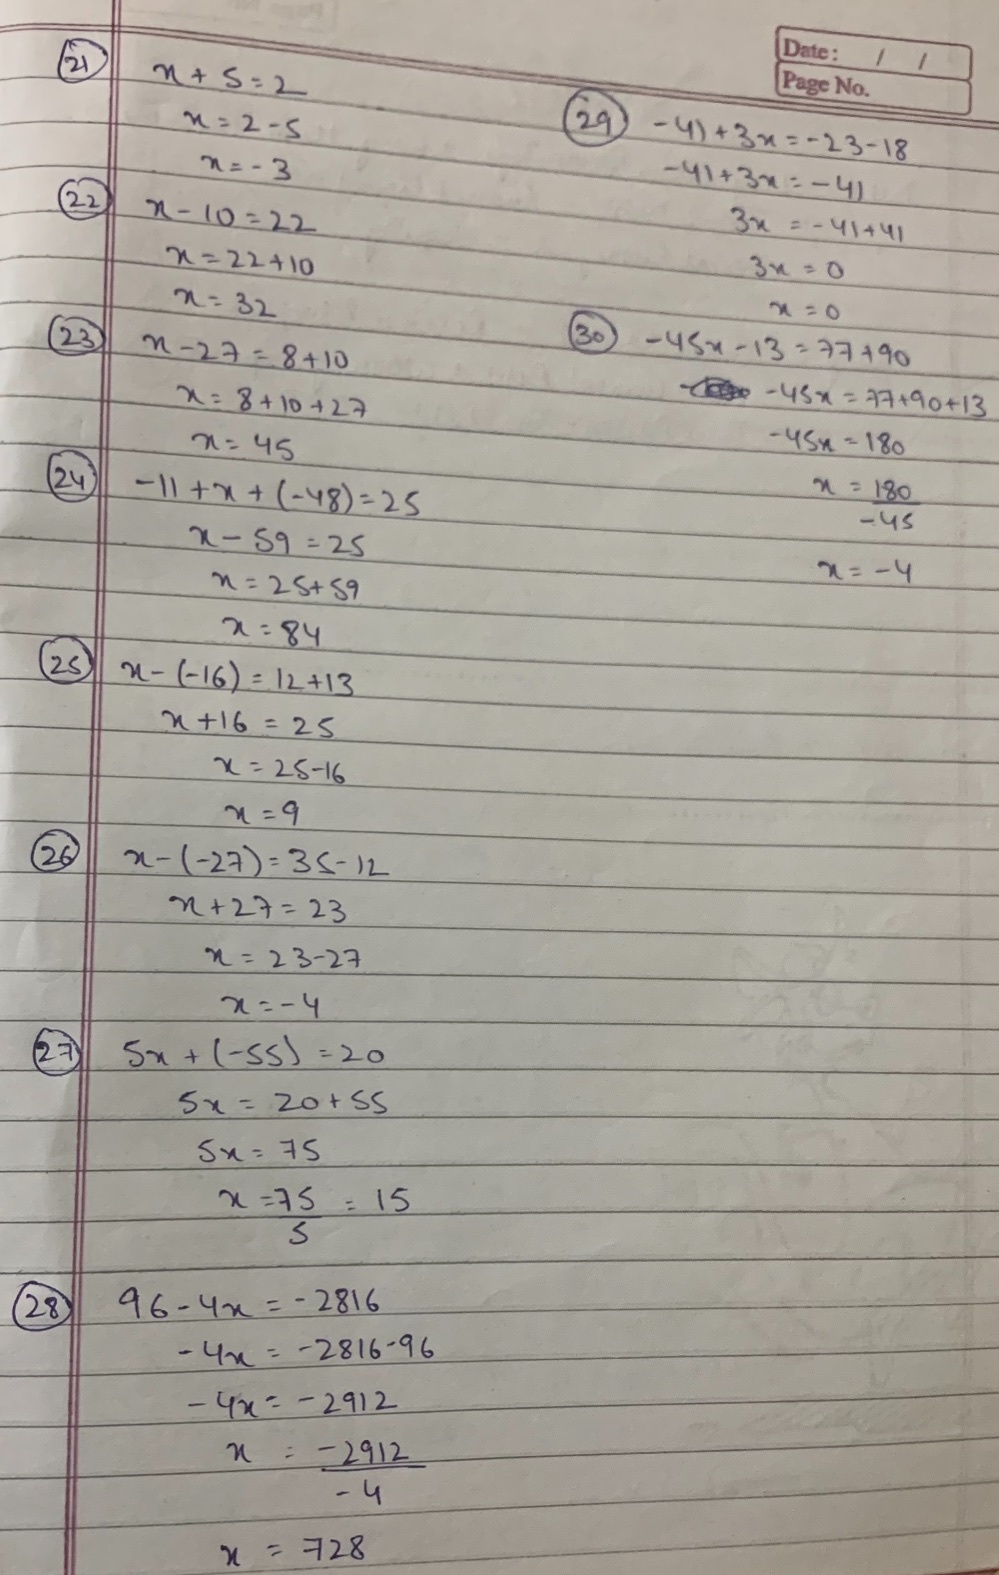 Date: / /
Page No.
21 x + 5 = 2
x = 2 - 5
x = - 3
22 x - 10 = 22
x = 22 + 10
x = 32
23 x - 27 = 8 + 10
x = 8 + 10 + 27
x = 45
24 -11 + x + (-48) = 25
x - 59 = 25
x = 25 + 59
x = 84
25 x - (-16) = 12 + 13
x + 16 = 25
x = 25 - 16
x = 9
26 x - (-27) = 35 - 12
x + 27 = 23
x = 23 - 27
x = - 4
27 5x + (-55) = 20
5x = 20 + 55
5x = 75
x = 75/5 = 15
28 96 - 4x = - 2816
- 4x = - 2816 - 96
- 4x = - 2912
x = -2912/-4
x = 728
29 - 41 + 3x = - 23 - 18
- 41 + 3x = - 41
3x = - 41 + 41
3x = 0
x = 0
30 - 45x - 13 = 77 + 90
- 45x = 77 + 90 + 13
- 45x = 180
x = 180/-45
x = - 4